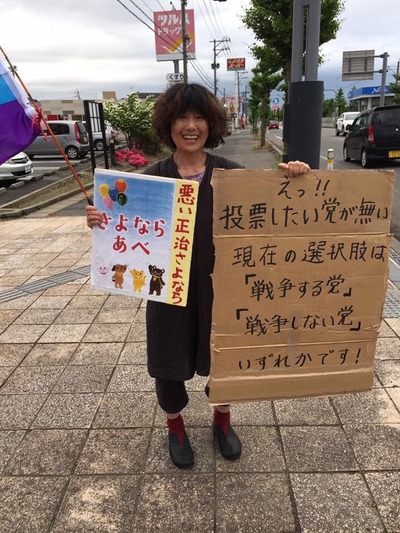 ツルハ
ドラッグ
くすり
さよなら
あべ
悪い正治さよなら
えっ!!
投票したい党が無い
現在の選択肢は
「戦争する党」
「戦争しない党」
いずれかです!